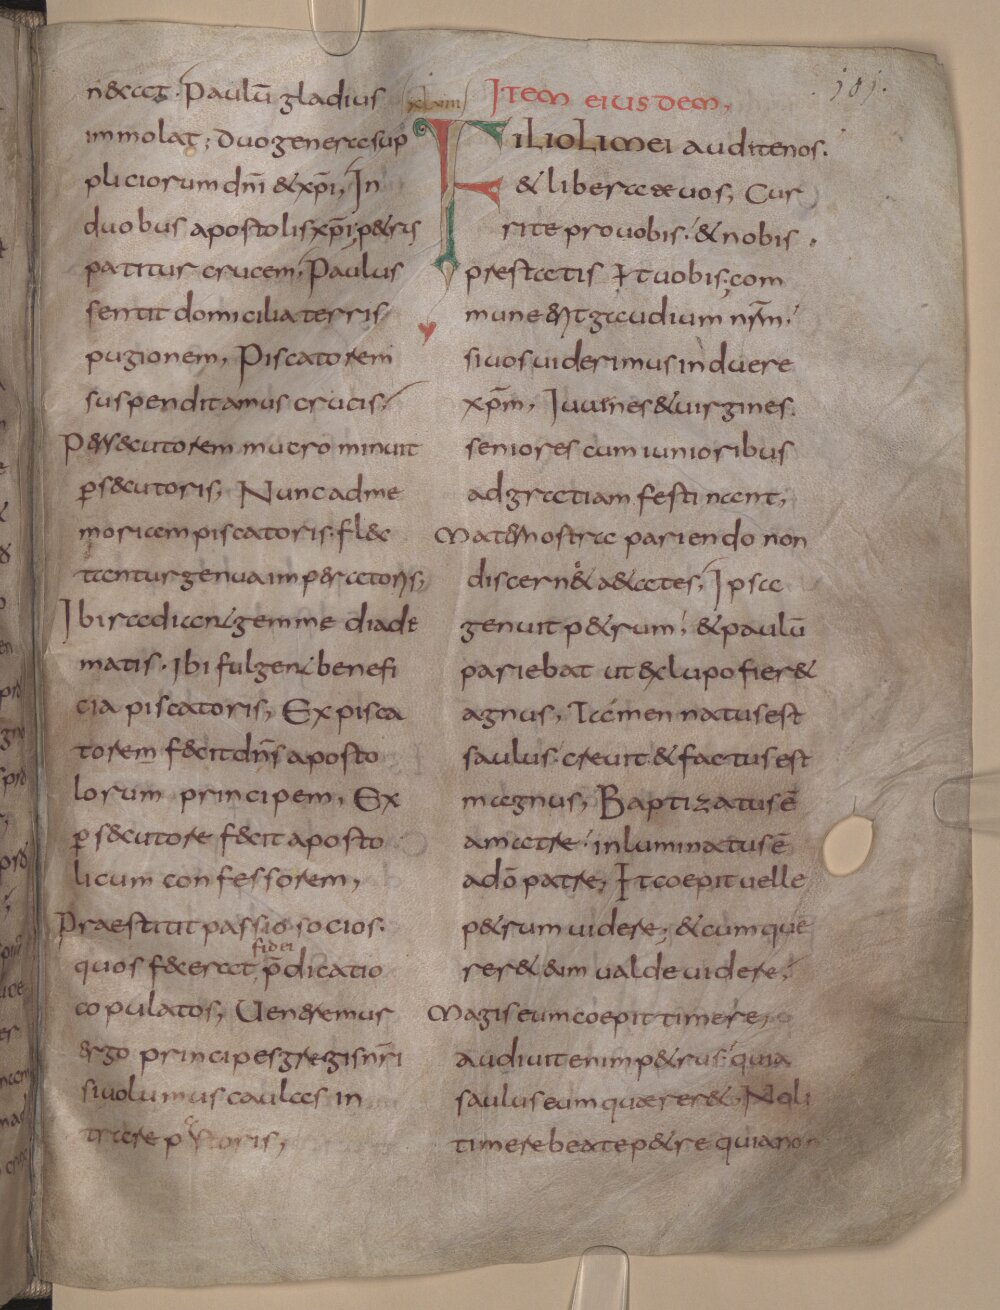 paulū gladius
immolat; duo genera sup
pliciorum dn̄i & xp̄i, In
duobus apostolis xp̄i p&ris
patitur crucem, Paulus
sentit domicilia terris
pugionem, Piscatorem
suspendit amus crucis,
Persecutorem mucro minuit
persecutoris, Nunc ad me
moriam piscatoris flec
tentur genua imperatoris,
Ibi radient gemme diade
matis. Ibi fulgent benefi
cia piscatoris, Ex pisca
torem fecit dn̄s aposto
lorum principem, Ex
persecutore fecit aposto
licum confessorem,
Praestitit passio socios.
quos fecerat fidei p̄dicatio
copulatos, Ueneremur
ergo principes gregis nr̄i
si uolumus caulas in
trare pastoris,
xlviii Item eiusdem,
Filioli mei audite nos.
& liberate uos, Cur
rite pro uobis. & nobis
prestatis Et uobis, com
mune erit gaudium nr̄m.
si uos uiderimus induere
xp̄m, Iuuenes & uirgines.
seniores cum iunioribus
ad gratiam festinent,
Mater nostra pariendo non
discernet aetates, Ipsa
genuit p&rum, & paulū
pariebat ut de lupo fier&
agnus, Tamen natus est
saulus. creuit & factus est
magnus, Baptizatus ē
a matre. inluminatus ē
a dō patre, Et coepit uelle
p&rum uidere, & cum quę
rer& eum ualde uidere.
Magis eum coepit timere,
audiuit enim p&rus. quia
saulus eum quaerer&, Noli
timere beate p&re quia non
181.